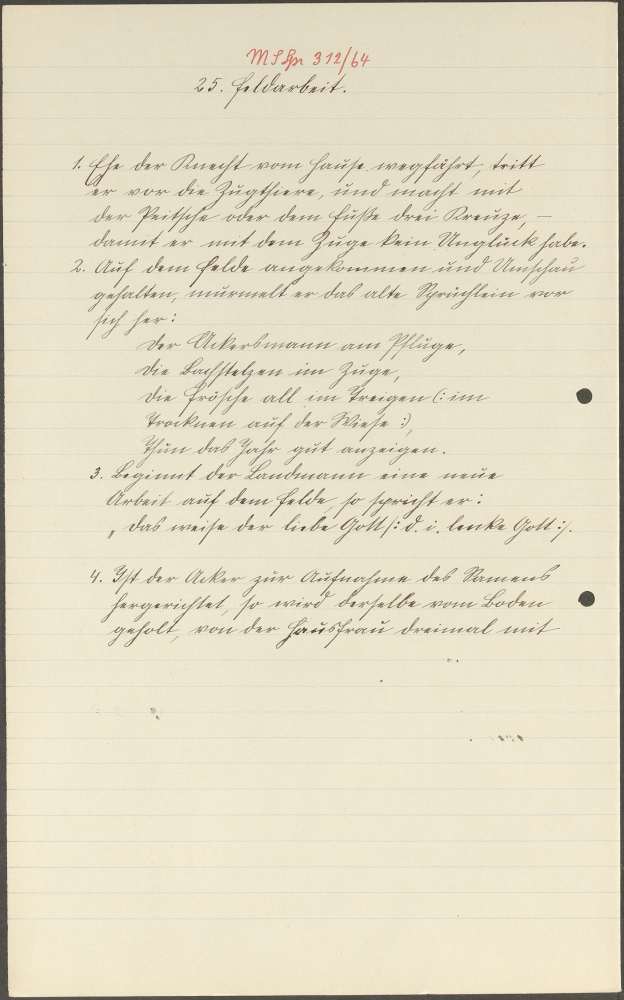 MSgr 312/64
25. Feldarbeit.
1. Ehe der Knecht vom Hause wegfährt, tritt
er vor die Zugthiere, und macht mit
der Peitsche oder dem Fuße drei Kreuze, —
damit er mit dem Zuge kein Unglück habe.
2. Auf dem Felde angekommen und Umschau
gehalten, murmelt er das alte Sprüchlein vor
sich her:
Der Ackersmann am Pfluge,
Die Bachstelzen im Zuge,
Die Frösche all im Treigen (: im
Trocknen auf der Wiese :),
Thun das Jahr gut anzeigen.
3. Beginnt der Landmann eine neue
Arbeit auf dem Felde, so spricht er:
„Das weise der liebe Gott /: d. i. lenke Gott :/.
4. Ist der Acker zur Aufnahme des Samens
hergerichtet, so wird derselbe vom Boden
geholt, von der Hausfrau dreimal mit